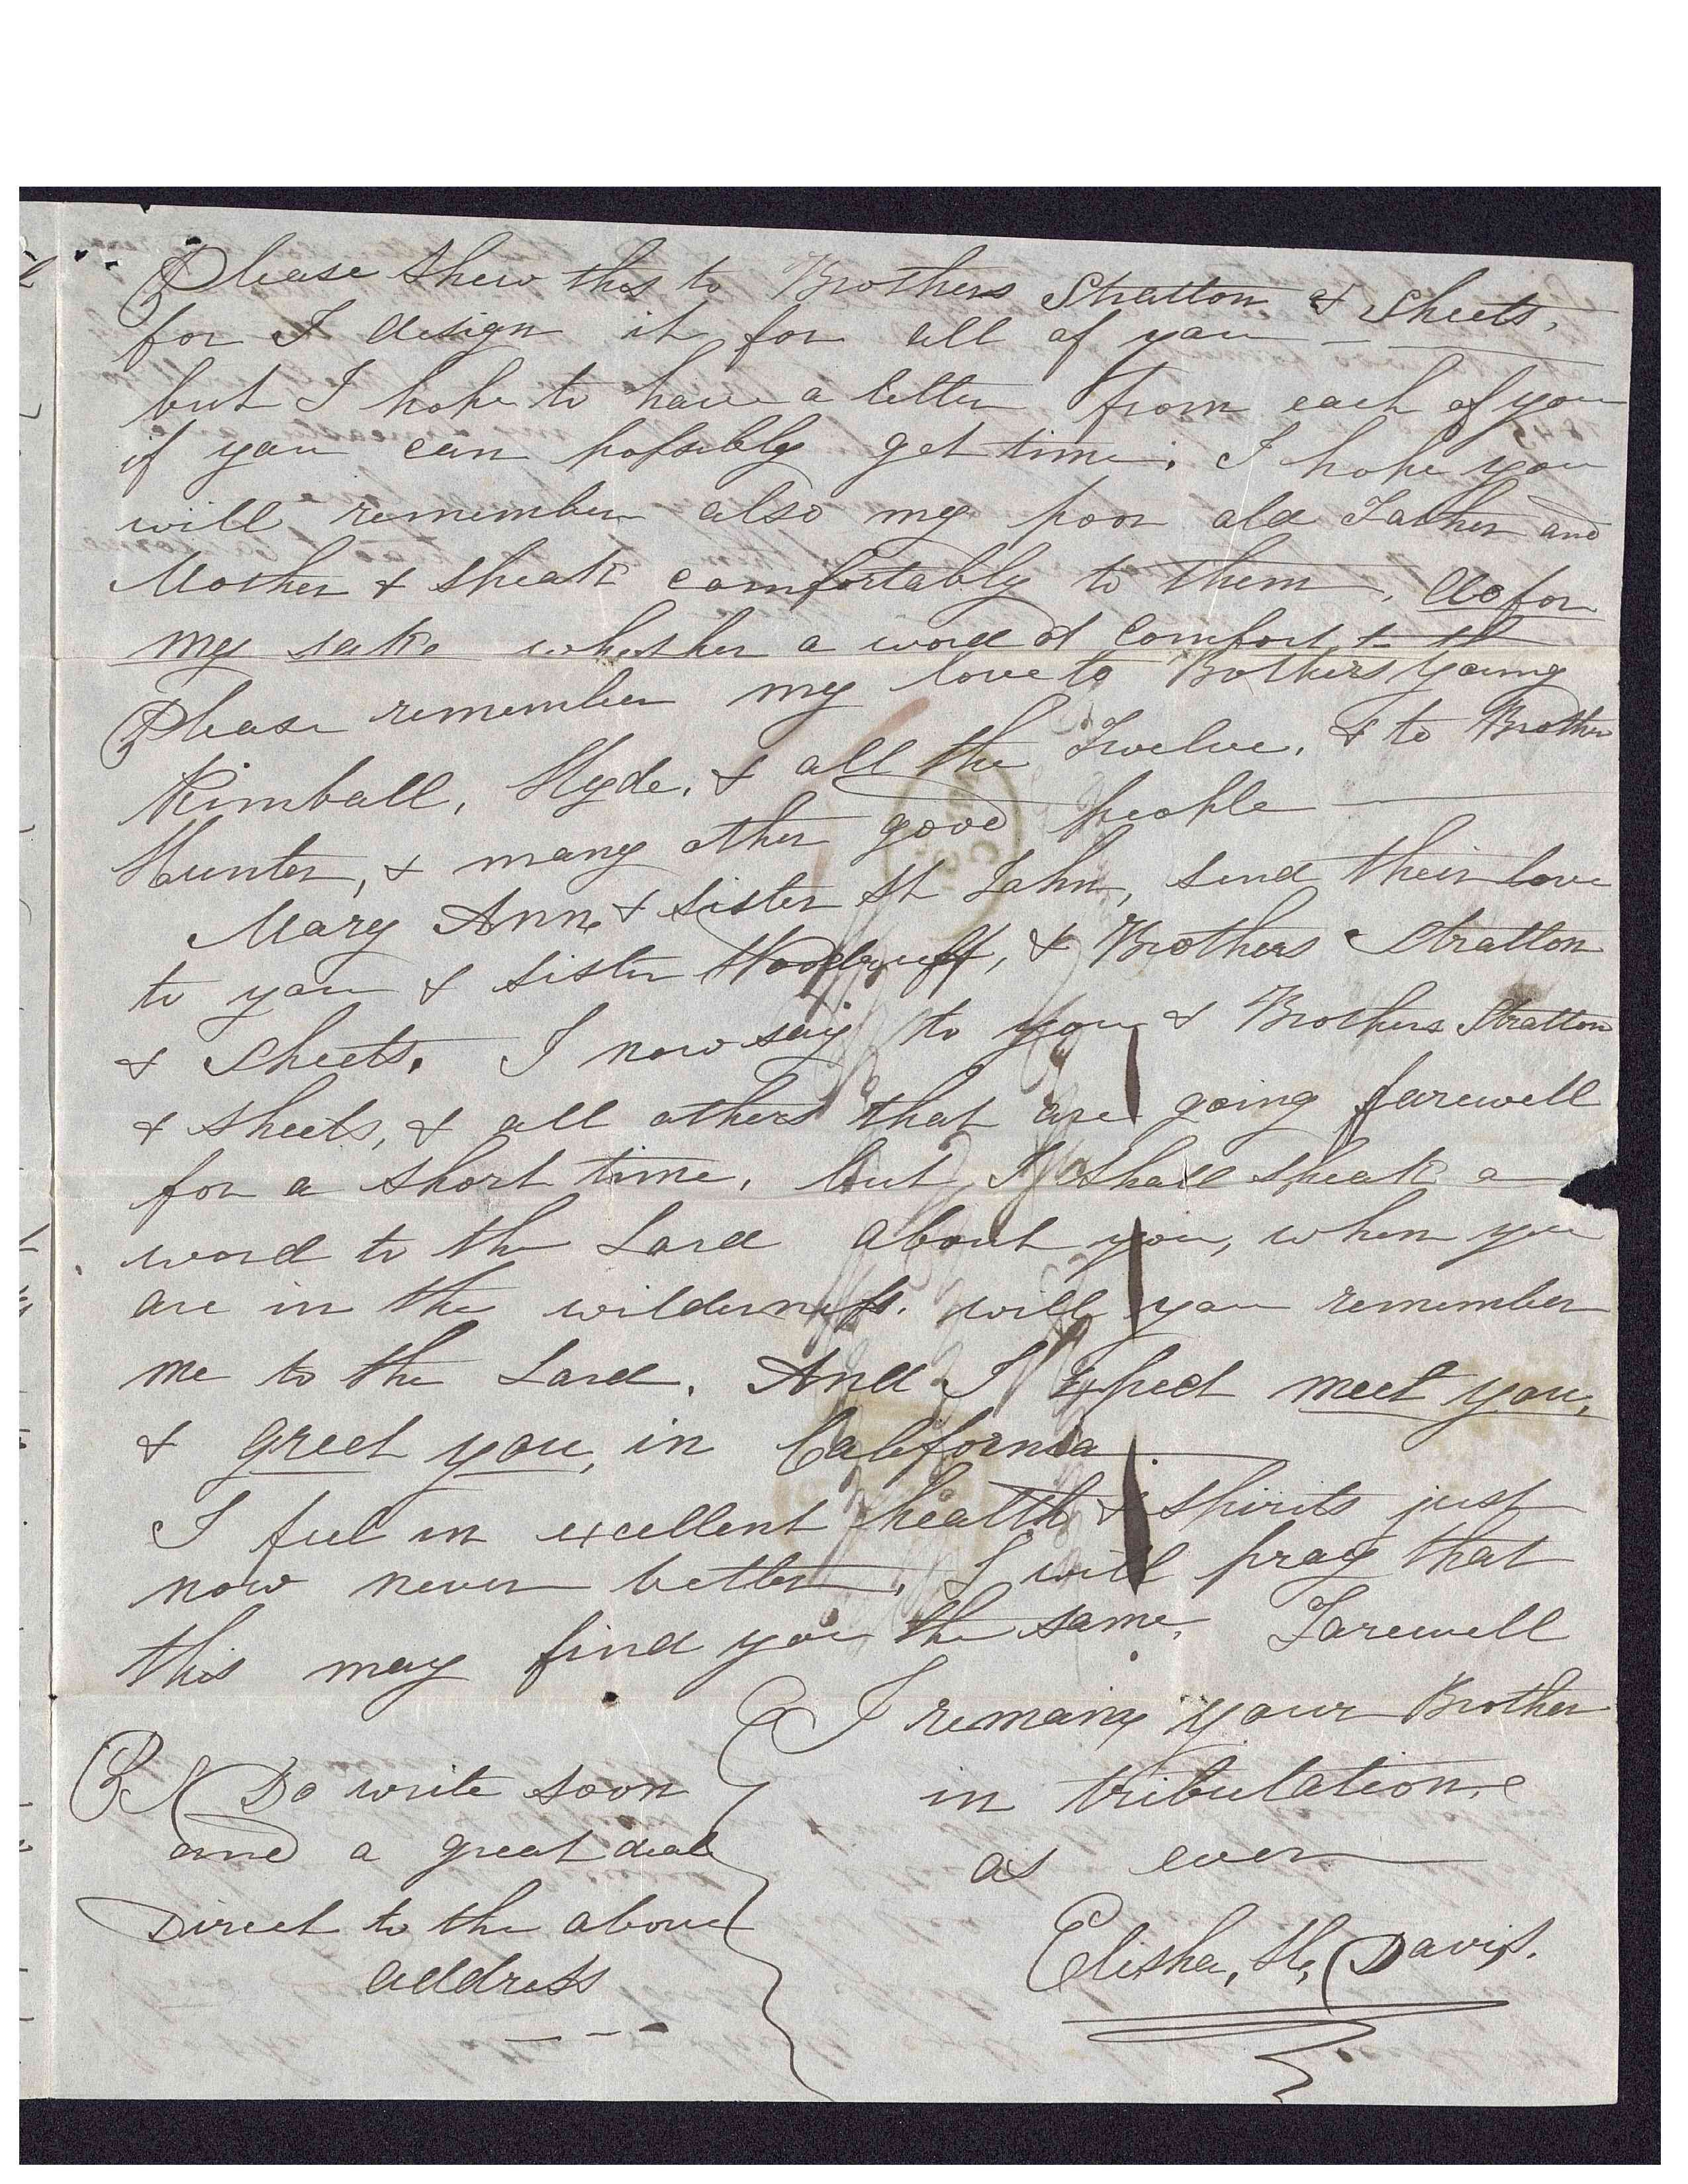 Please shew this to Brothers Stratton & Sheets,
for I design it for all of you
but I hope to have a letter from each of you
if you can possibly get time. I hope you
will remember also my poor old Father and
Mother & speak comfortably to them, do for
my sake whisper a word of comfort
Please remember my love to Brothers Young
Kimball, Hyde, & all the Twelve, & to Brother
Hunter, & many other good people
Mary Ann & Sister St John, send their love
to you & Sister Woodruff, & Brothers Stratton
& Sheets. I now say to you & Brothers Stratton
& Sheets, & all others that are going farewell
for a short time, but I shall speak a
word to the Lord about you, when you
are in the wilderness. will you remember
me to the Lord. And I expect meet you,
& greet you, in California
I feel in excellent health & spirits just
now never better, I will pray that
this may find you the same. Farewell
I remain your Brother
in tribulation
as ever
Elisha, H, Davis.
Do write soon
and a great deal
Direct to the above
address